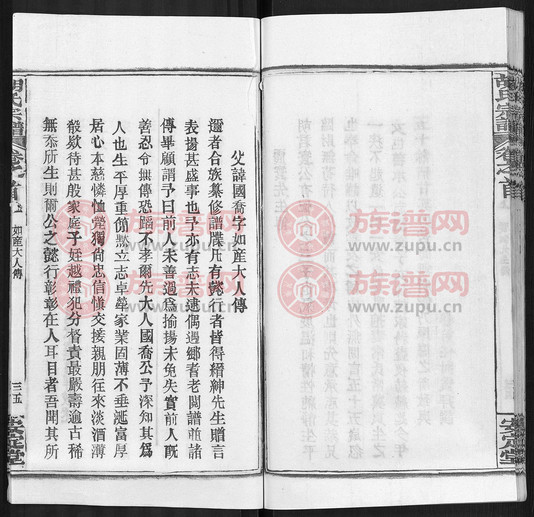 胡氏宗譜
卷之首
如産大人傳
三五
安定堂
父諱國喬字如産大人傳
邇者合族纂修譜牒凡有懿行者皆得縉紳先生贈言
表揚甚盛事也予亦有志未逮偶遇鄉者老閱譜並諸
傳畢顧謂予曰前人未善過爲揄揚未免失實前人既
善忍令無傳恐蹈不孝爾先大人國喬公予深知其爲
人也生平厚重儼黙立志卓犖家業固薄不垂涎富厚
居心本慈憐恤煢獨尚忠信慎交接親朋往來淡酒薄
殽欵待甚殷家庭子姪越禮犯分督責最嚴壽逾古稀
無忝所生則爾公之懿行彰彰在人耳目者吾聞其所
族谱网
www.zupu.cn
族谱网
www.zupu.cn
族谱网
www.zupu.cn
族谱网
www.zupu.cn
胡氏宗譜
卷之首
安定堂